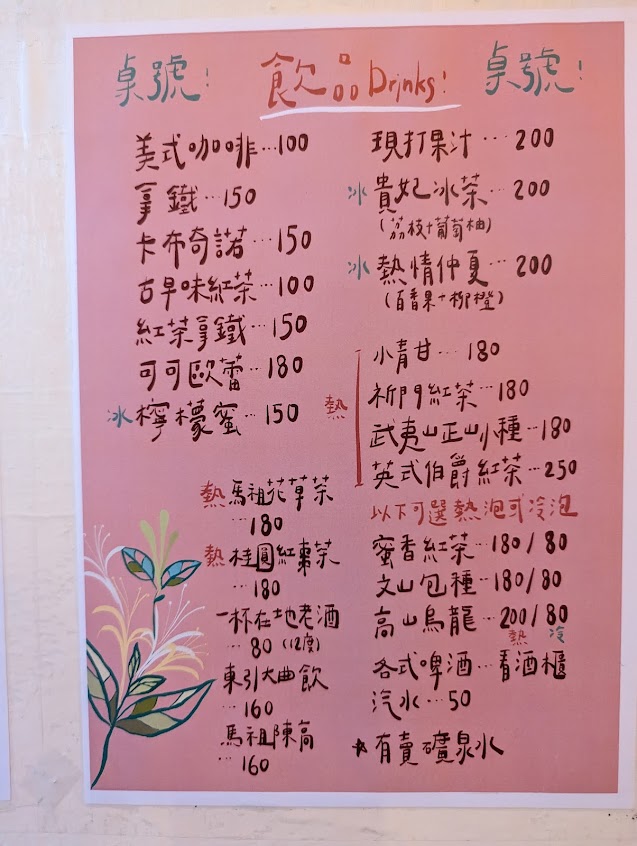 桌號:
飲品Drinks!
桌號:
美式咖啡…100
拿鐵…150
卡布奇諾…150
古早味紅茶…100
紅茶拿鐵…150
可可歐蕾…180
冰 檸檬蜜…150
熱 馬祖花草茶
…180
熱 桂圓紅棗茶
…180
一杯在地老酒
…80 (12度)
東引大曲飲
…160
馬祖陳高
…160
現打果汁…200
冰 貴妃冰茶…200
(荔枝+葡萄柚)
冰 熱情仲夏…200
(百香果+柳橙)
熱
小青甘…180
祈門紅茶…180
武夷山正山小種…180
英式伯爵紅茶…250
以下可選熱泡或冷泡
蜜香紅茶…180/80
文山包種…180/80
高山烏龍…200/80
熱 冷
各式啤酒…看酒櫃
汽水…50
★有賣礦泉水